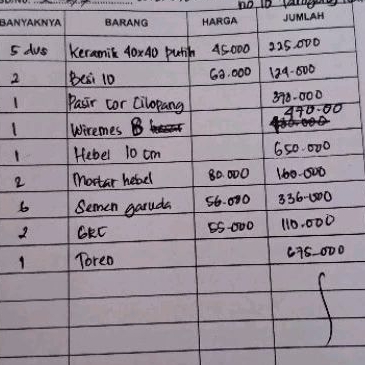 BANYAKNYA BARANG HARGA JUMLAH
5 dus Keramik 40x40 putih 45.000 225.000
2 Besi 10 62.000 124.000
1 Pasir cor Cilopang 390.000
470.00
1 Wiremes 8
1 Hebel 10 cm 650.000
2 Mortar hebel 80.000 160.000
6 Semen garuda 56.000 336.000
2 GRC 55.000 110.000
1 Toren 675.000